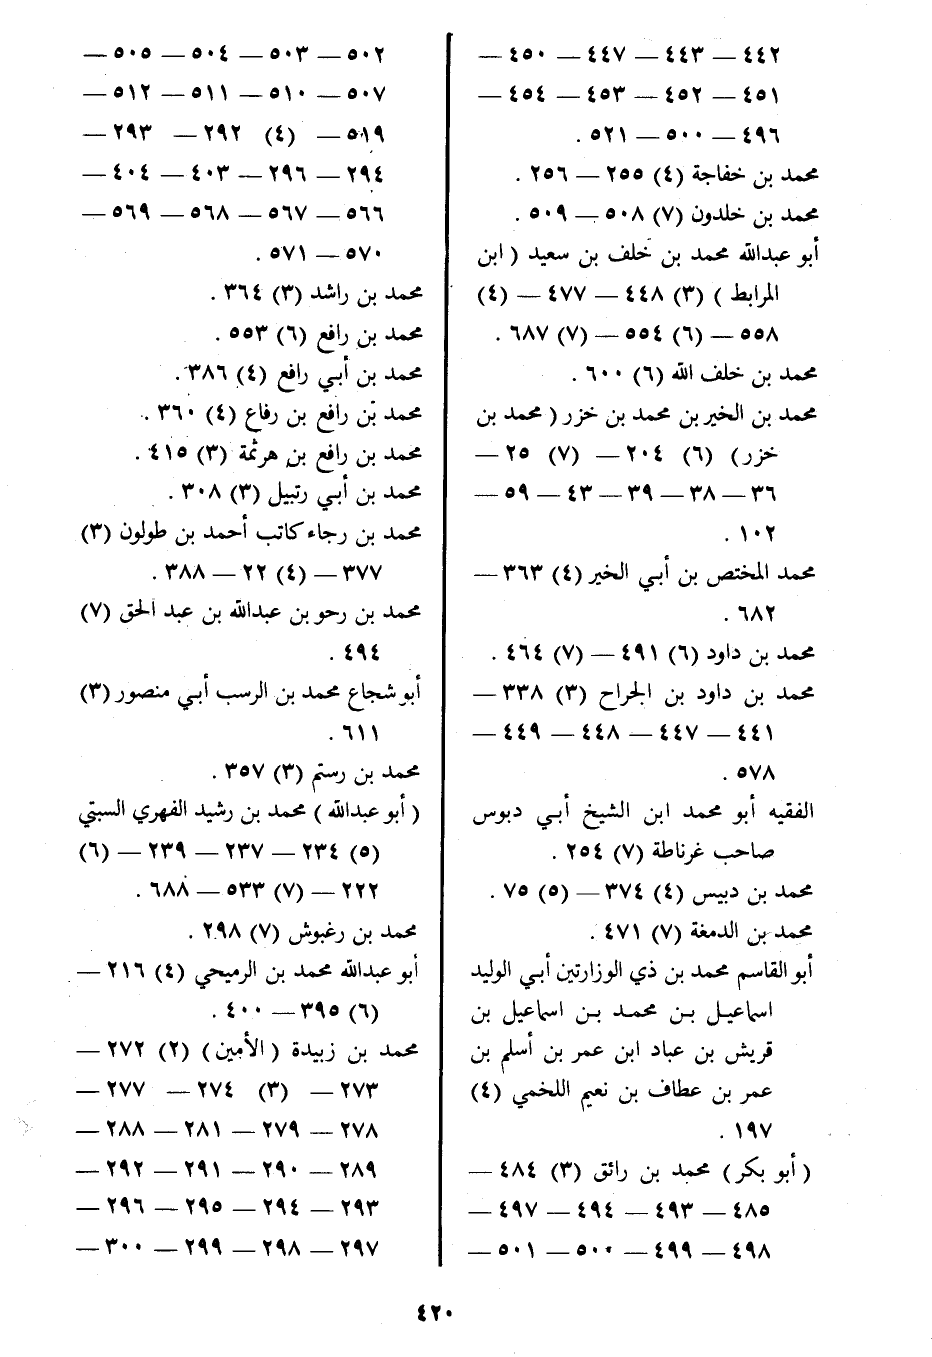 ٤٤٢ — ٤٤٣ — ٤٤٧ — ٤٥٠ —
٤٥١ — ٤٥٢ — ٤٥٣ — ٤٥٤ —
٤٩٦ — ٥٠٠ — ٥٢١ .
محمد بن خفاجة (٤) ٢٥٥ — ٢٥٦ .
محمد بن خلدون (٧) ٥٠٨ — ٥٠٩ .
أبو عبدالله محمد بن خلف بن سعيد ( ابن
المرابط ) (٣) ٤٤٨ — ٤٧٧ — (٤)
٥٥٨ — (٦) ٥٥٤ — (٧) ٦٨٧ .
محمد بن خلف الله (٦) ٦٠٠ .
محمد بن الخير بن محمد بن خزر ( محمد بن
خزر ) (٦) ٢٠٤ — (٧) ٢٥ —
٣٦ — ٣٨ — ٣٩ — ٤٣ — ٥٩ —
١٠٢ .
محمد المختص بن أبي الخير (٤) ٣٦٣ —
٦٨٢ .
محمد بن داود (٦) ٤٩١ — (٧) ٤٦٤ .
محمد بن داود بن الجراح (٣) ٣٣٨ —
٤٤١ — ٤٤٧ — ٤٤٨ — ٤٤٩ —
٥٧٨ .
الفقيه أبو محمد ابن الشيخ أبي دبوس
صاحب غرناطة (٧) ٢٥٤ .
محمد بن دبيس (٤) ٣٧٤ — (٥) ٧٥ .
محمد بن الدمغة (٧) ٤٧١ .
أبو القاسم محمد بن ذي الوزارتين أبي الوليد
اسماعيل بن محمد بن اسماعيل بن
قريش بن عباد ابن عمر بن أسلم بن
عمر بن عطاف بن نعيم اللخمي (٤)
١٩٧ .
( أبو بكر ) محمد بن رائق (٣) ٤٨٤ —
٤٨٥ — ٤٩٣ — ٤٩٤ — ٤٩٧ —
٤٩٨ — ٤٩٩ — ٥٠٠ — ٥٠١ —
٥٠٢ — ٥٠٣ — ٥٠٤ — ٥٠٥ —
٥٠٧ — ٥١٠ — ٥١١ — ٥١٢ —
٥١٩ — (٤) ٢٩٢ — ٢٩٣ —
٢٩٤ — ٢٩٦ — ٤٠٣ — ٤٠٤ —
٥٦٦ — ٥٦٧ — ٥٦٨ — ٥٦٩ —
٥٧٠ — ٥٧١ .
محمد بن راشد (٣) ٣٦٤ .
محمد بن رافع (٦) ٥٥٣ .
محمد بن أبي رافع (٤) ٣٨٦ .
محمد بن رافع بن رفاع (٤) ٣٦٠ .
محمد بن رافع بن هرثمة (٣) ٤١٥ .
محمد بن أبي رتبيل (٣) ٣٠٨ .
محمد بن رجاء كاتب أحمد بن طولون (٣)
٣٧٧ — (٤) ٢٢ — ٣٨٨ .
محمد بن رحو بن عبدالله بن عبد الحق (٧)
٤٩٤ .
أبو شجاع محمد بن الرسب أبي منصور (٣)
٦١١ .
محمد بن رستم (٣) ٣٥٧ .
( أبو عبدالله ) محمد بن رشيد الفهري السبتي
(٥) ٢٣٤ — ٢٣٧ — ٢٣٩ — (٦)
٢٢٢ — (٧) ٥٣٣ — ٦٨٨ .
محمد بن رغبوش (٧) ٢٩٨ .
أبو عبدالله محمد بن الرميحي (٤) ٢١٦ —
(٦) ٣٩٥ — ٤٠٠ .
محمد بن زبيدة ( الأمين ) (٢) ٢٧٢ —
٢٧٣ — (٣) ٢٧٤ — ٢٧٧ —
٢٧٨ — ٢٧٩ — ٢٨١ — ٢٨٨ —
٢٨٩ — ٢٩٠ — ٢٩١ — ٢٩٢ —
٢٩٣ — ٢٩٤ — ٢٩٥ — ٢٩٦ —
٢٩٧ — ٢٩٨ — ٢٩٩ — ٣٠٠ —
٤٢٠